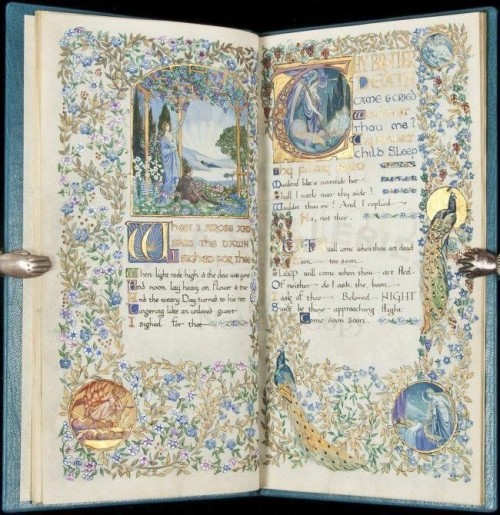 WHEN I AROSE AND
SAW THE DAWN
I SIGHED FOR THEE
When light rode high & the dew was gone
And noon lay heavy on flower & tree
And the weary Day turned to his rest
Lingering like an unloved guest
I sighed for thee
THY BROTHER
DEATH
CAME & CRIED
WOULDST
thou me?
THY SWEET
child SLEEP
thy filmy eyed
Murmured like a noontide bee
Shall I nestle near thy side?
Wouldst thou me? And I replied
No, not thee.
Death will come when thou art dead
Soon too soon
Sleep will come when thou art fled.
Of neither do I ask the boon
I ask of thee Beloved NIGHT
Swift be thine approaching flight
Come soon soon